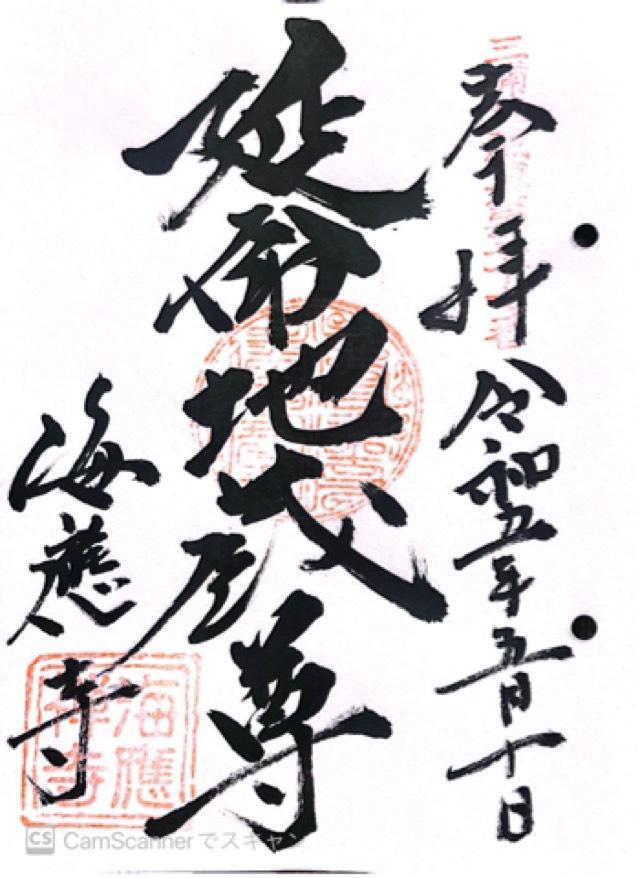 奉拝
令和五年五月十日
延命地蔵尊
海應寺
海應
禅寺
CS CamScannerでスキャン